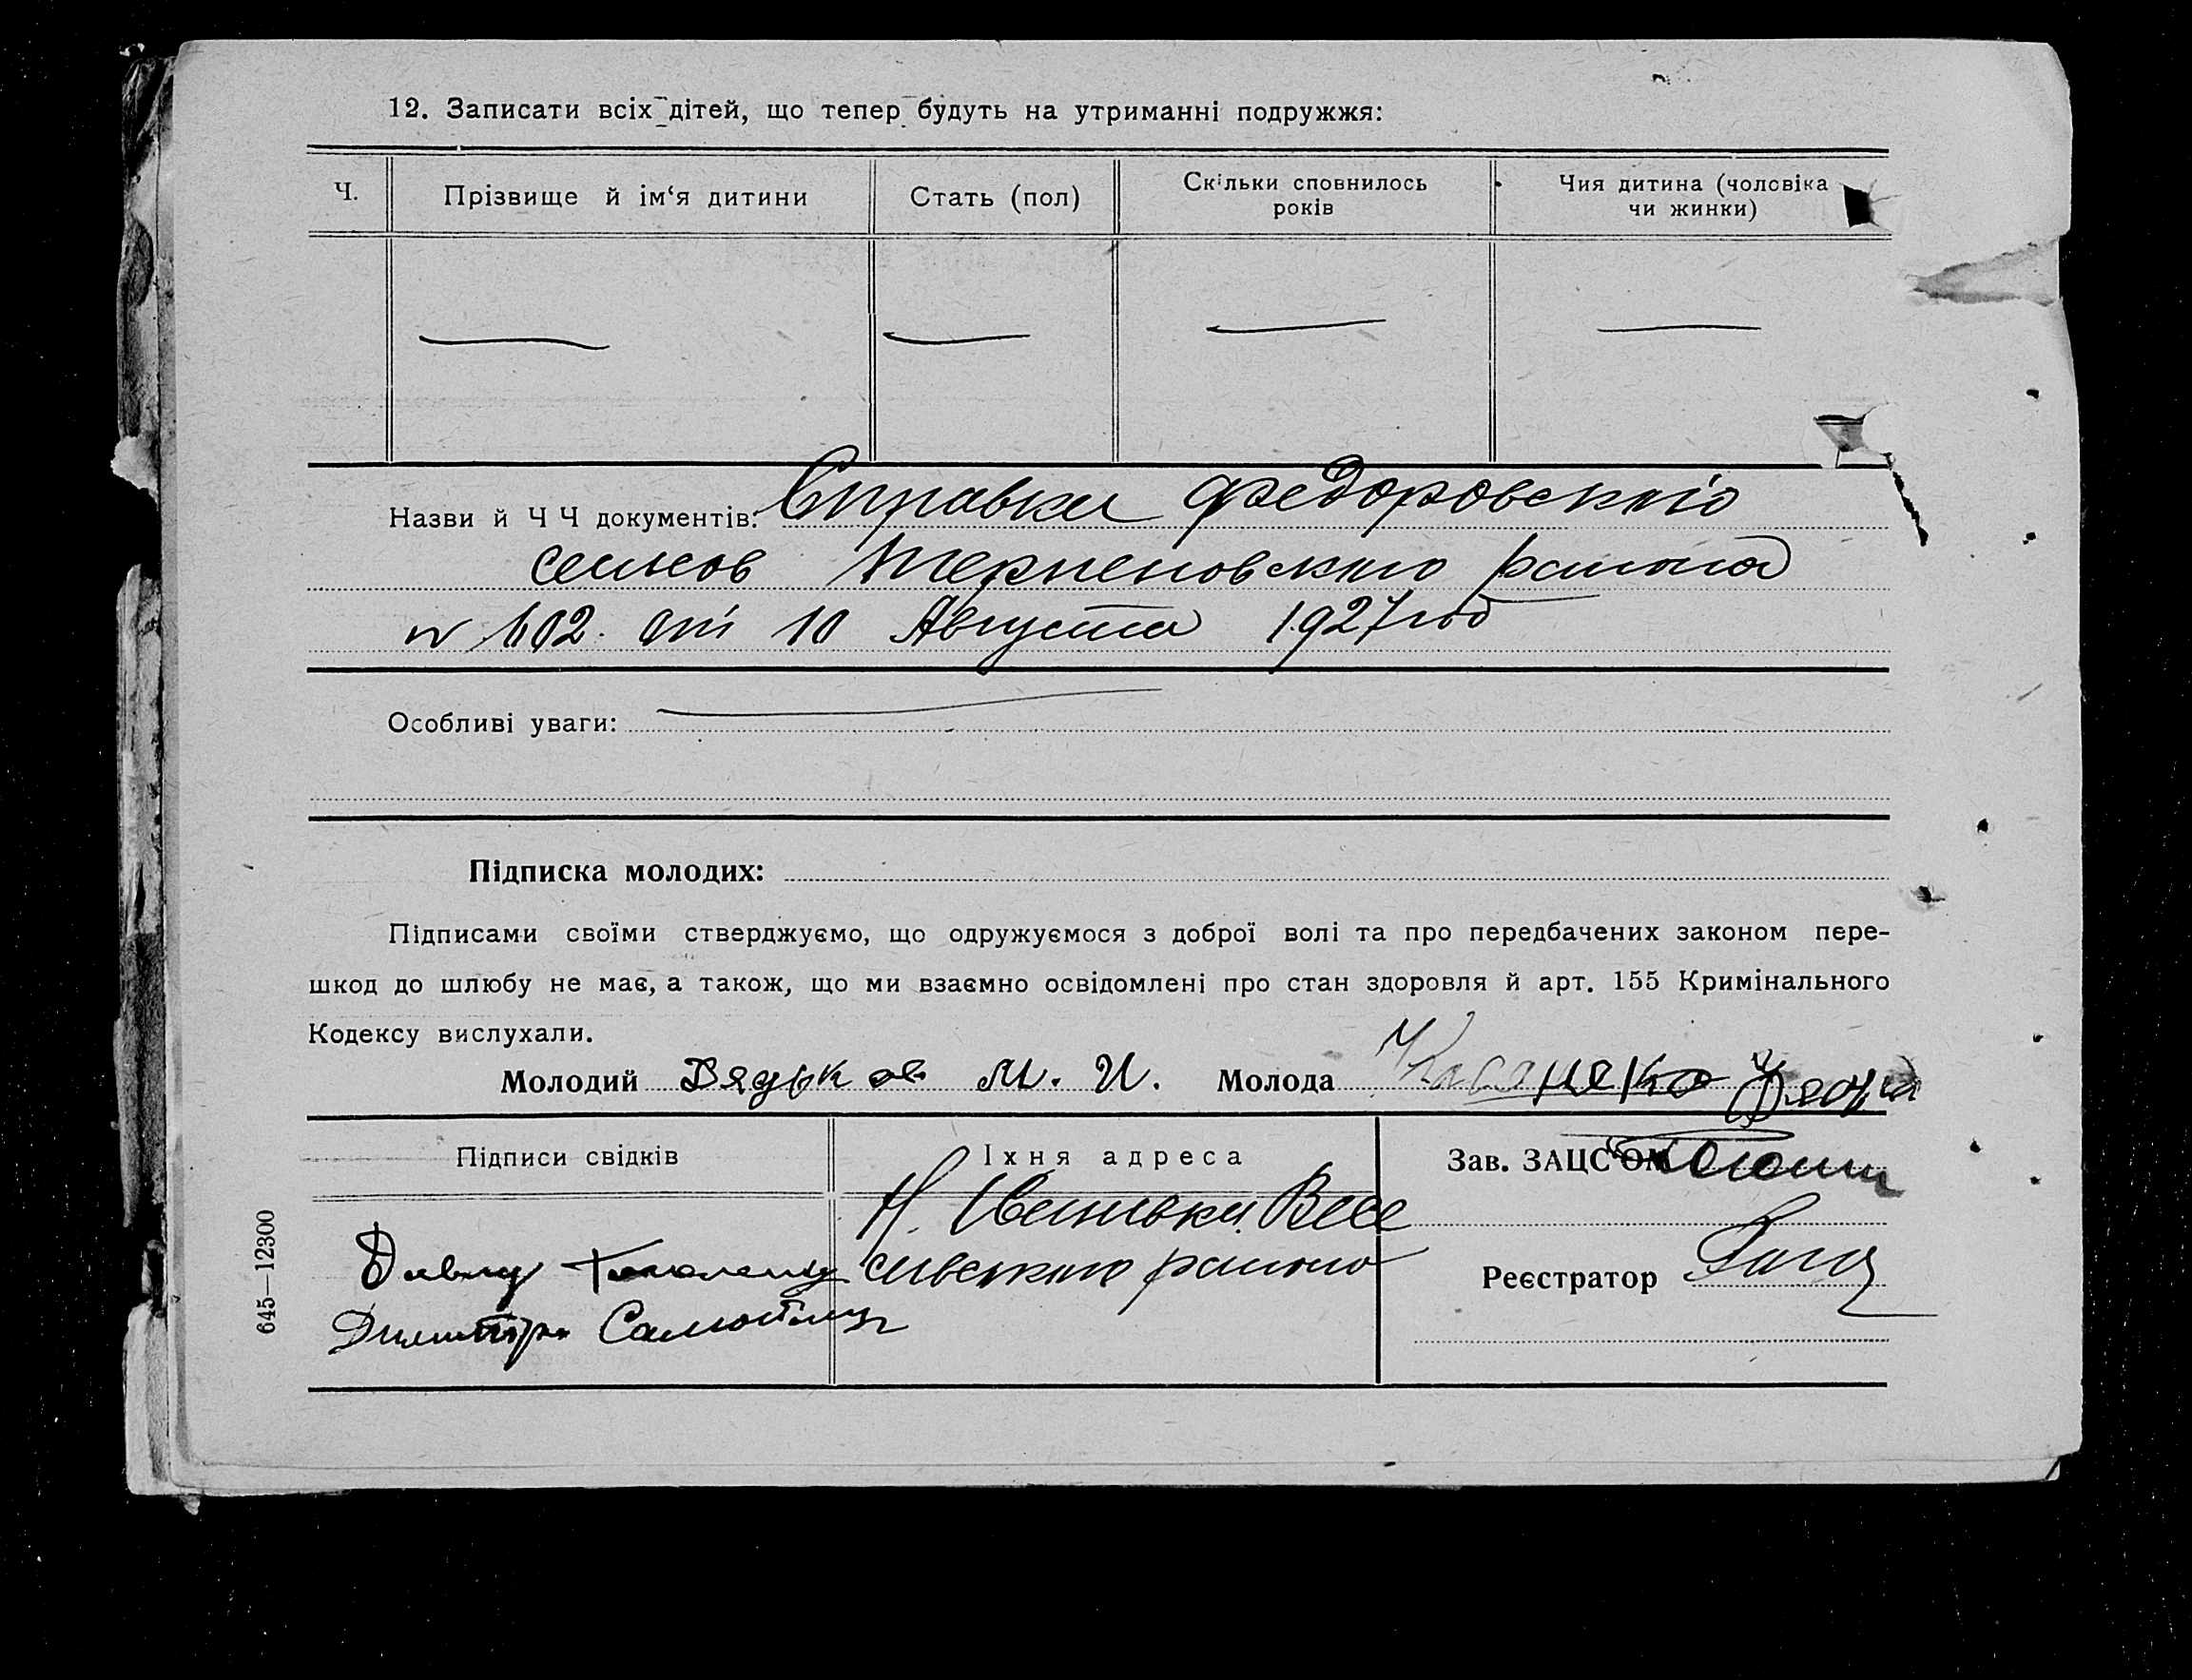 12. Записати всіх дітей, що тепер будуть на утриманні подружжя:
Ч. Прізвище й ім'я дитини Стать (пол) Скільки сповнилось років Чия дитина (чоловіка чи жинки)
Назви й Ч Ч документів: Справка Федоровского
сельсов Терпеновского района
№ 102. от 10 Августа 1927 год
Особливі уваги:
Підписка молодих:
Підписами своїми стверджуємо, що одружуємося з доброї волі та про передбачених законом пере-
шкод до шлюбу не має, а також, що ми взаємно освідомлені про стан здоровля й арт. 155 Кримінального
Кодексу вислухали.
Молодий Дядьков М. И. Молода
Підписи свідків Їхня адреса Зав. ЗАЦС'ОМ
Н. Ивановка Весе
Давид
сивского района
Реєстратор
Димитри
645—12300